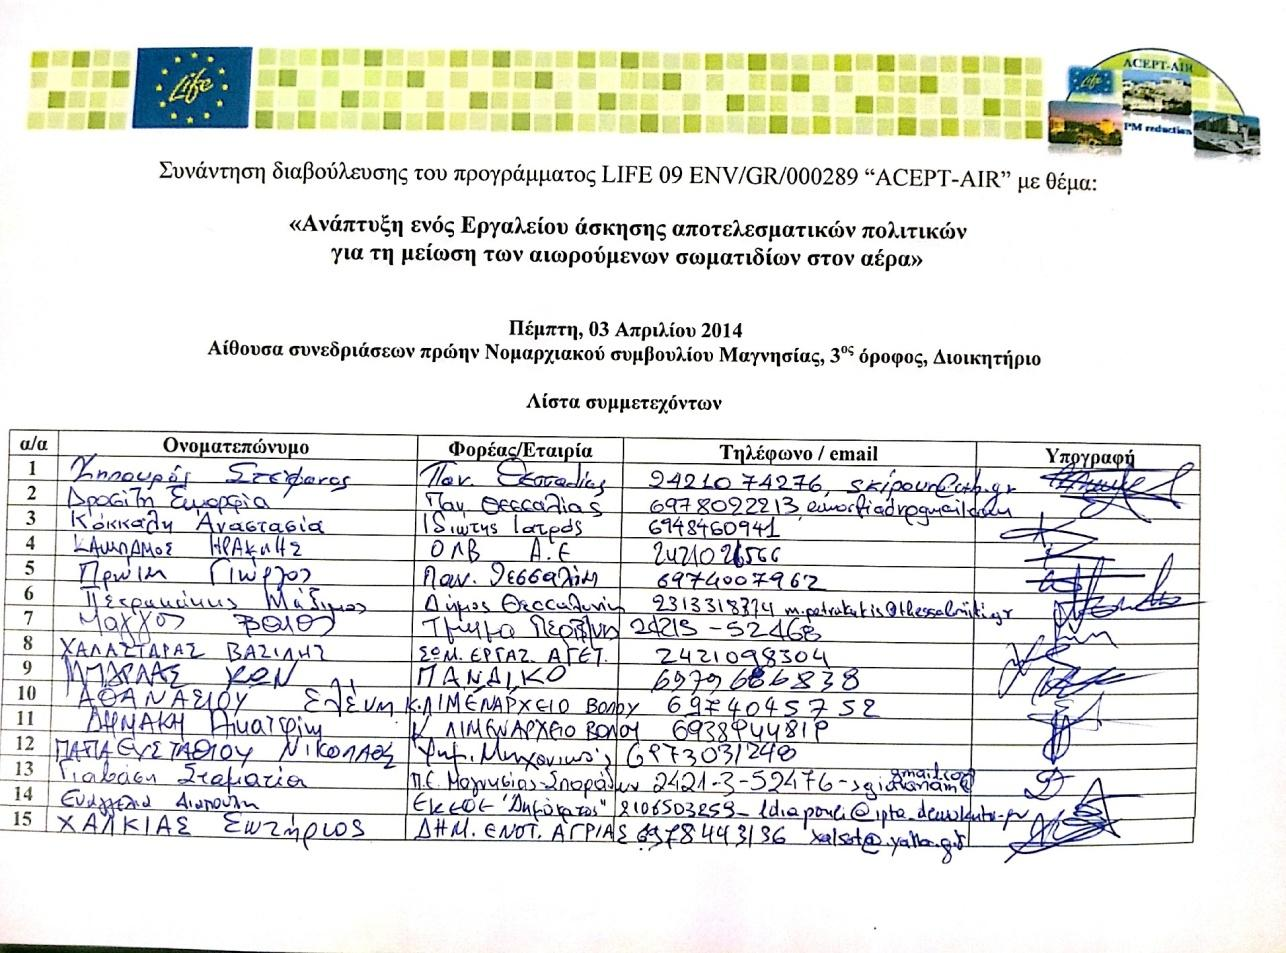 Life
ACEPT-AIR
PM reduction
Συνάντηση διαβούλευσης του προγράμματος LIFE 09 ENV/GR/000289 “ACEPT-AIR” με θέμα:
«Ανάπτυξη ενός Εργαλείου άσκησης αποτελεσματικών πολιτικών
για τη μείωση των αιωρούμενων σωματιδίων στον αέρα»
Πέμπτη, 03 Απριλίου 2014
Αίθουσα συνεδριάσεων πρώην Νομαρχιακού συμβουλίου Μαγνησίας, 3ος όροφος, Διοικητήριο
Λίστα συμμετεχόντων
α/α Ονοματεπώνυμο Φορέας/Εταιρία Τηλέφωνο / email Υπογραφή
1 Κηπουρός Στέφανος Παν. Θεσσαλίας 2421074276,
2 Δροσίτη Παν Θεσσαλίας 6978092213,
3 Κόκκαλη Αναστασία Ιδιώτης Ιατρός 6948460941
4 ΟΛΒ Α.Ε
5 Γιώργος Παν. Θεσσαλίας 6974007962
6 Πετρακάκης Μάξιμος Δήμος Θεσσαλονίκη m.petrakakis@thessaloniki.gr
7 Τμήμα
8 ΧΑΛΑΣΤΑΡΑΣ ΒΑΣΙΛΗΣ ΣΩΜ. ΕΡΓΑΖ. ΑΓΕΤ. 2421098304
9 ΚΩΝ ΠΑΝΔΙΚΟ
10 ΑΘΑΝΑΣΙΟΥ Ελένη Κ.ΛΙΜΕΝΑΡΧΕΙΟ ΒΟΛΟΥ 6974045752
11 ΔΗΜΑΚΗ Αικατρίνη Κ ΛΙΜΕΝΑΡΧΕΙΟ ΒΟΛΟΥ
12 ΠΑΠΑΕΥΣΤΑΘΙΟΥ Νικόλαος Χημ. Μηχανικός 6973031248
13 Γιαβάση Σταματία Π.Ε. Μαγνησίας-Σποράδων 2421-3-52476
14 Ευαγγελία Διαπούλη ΕΚΕΦΕ "Δημόκριτος" 2106503259
15 ΧΑΛΚΙΑΣ Σωτήριος ΔΗΜ. ΕΝΟΤ. ΑΓΡΙΑΣ 6978443136